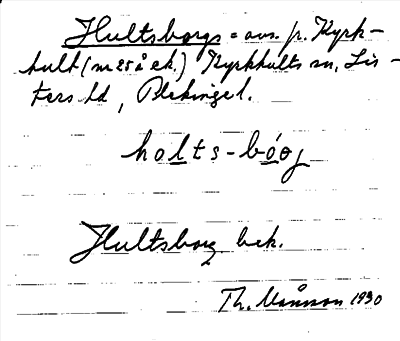 Hultsborgs = avs. p. Kyrk-
hult (m 25å ek.) Kyrkhults sn, Lis-
ters hd, Blekinge l.
holts-bóog
Hultsborg bek.
Th. Månsson 1930